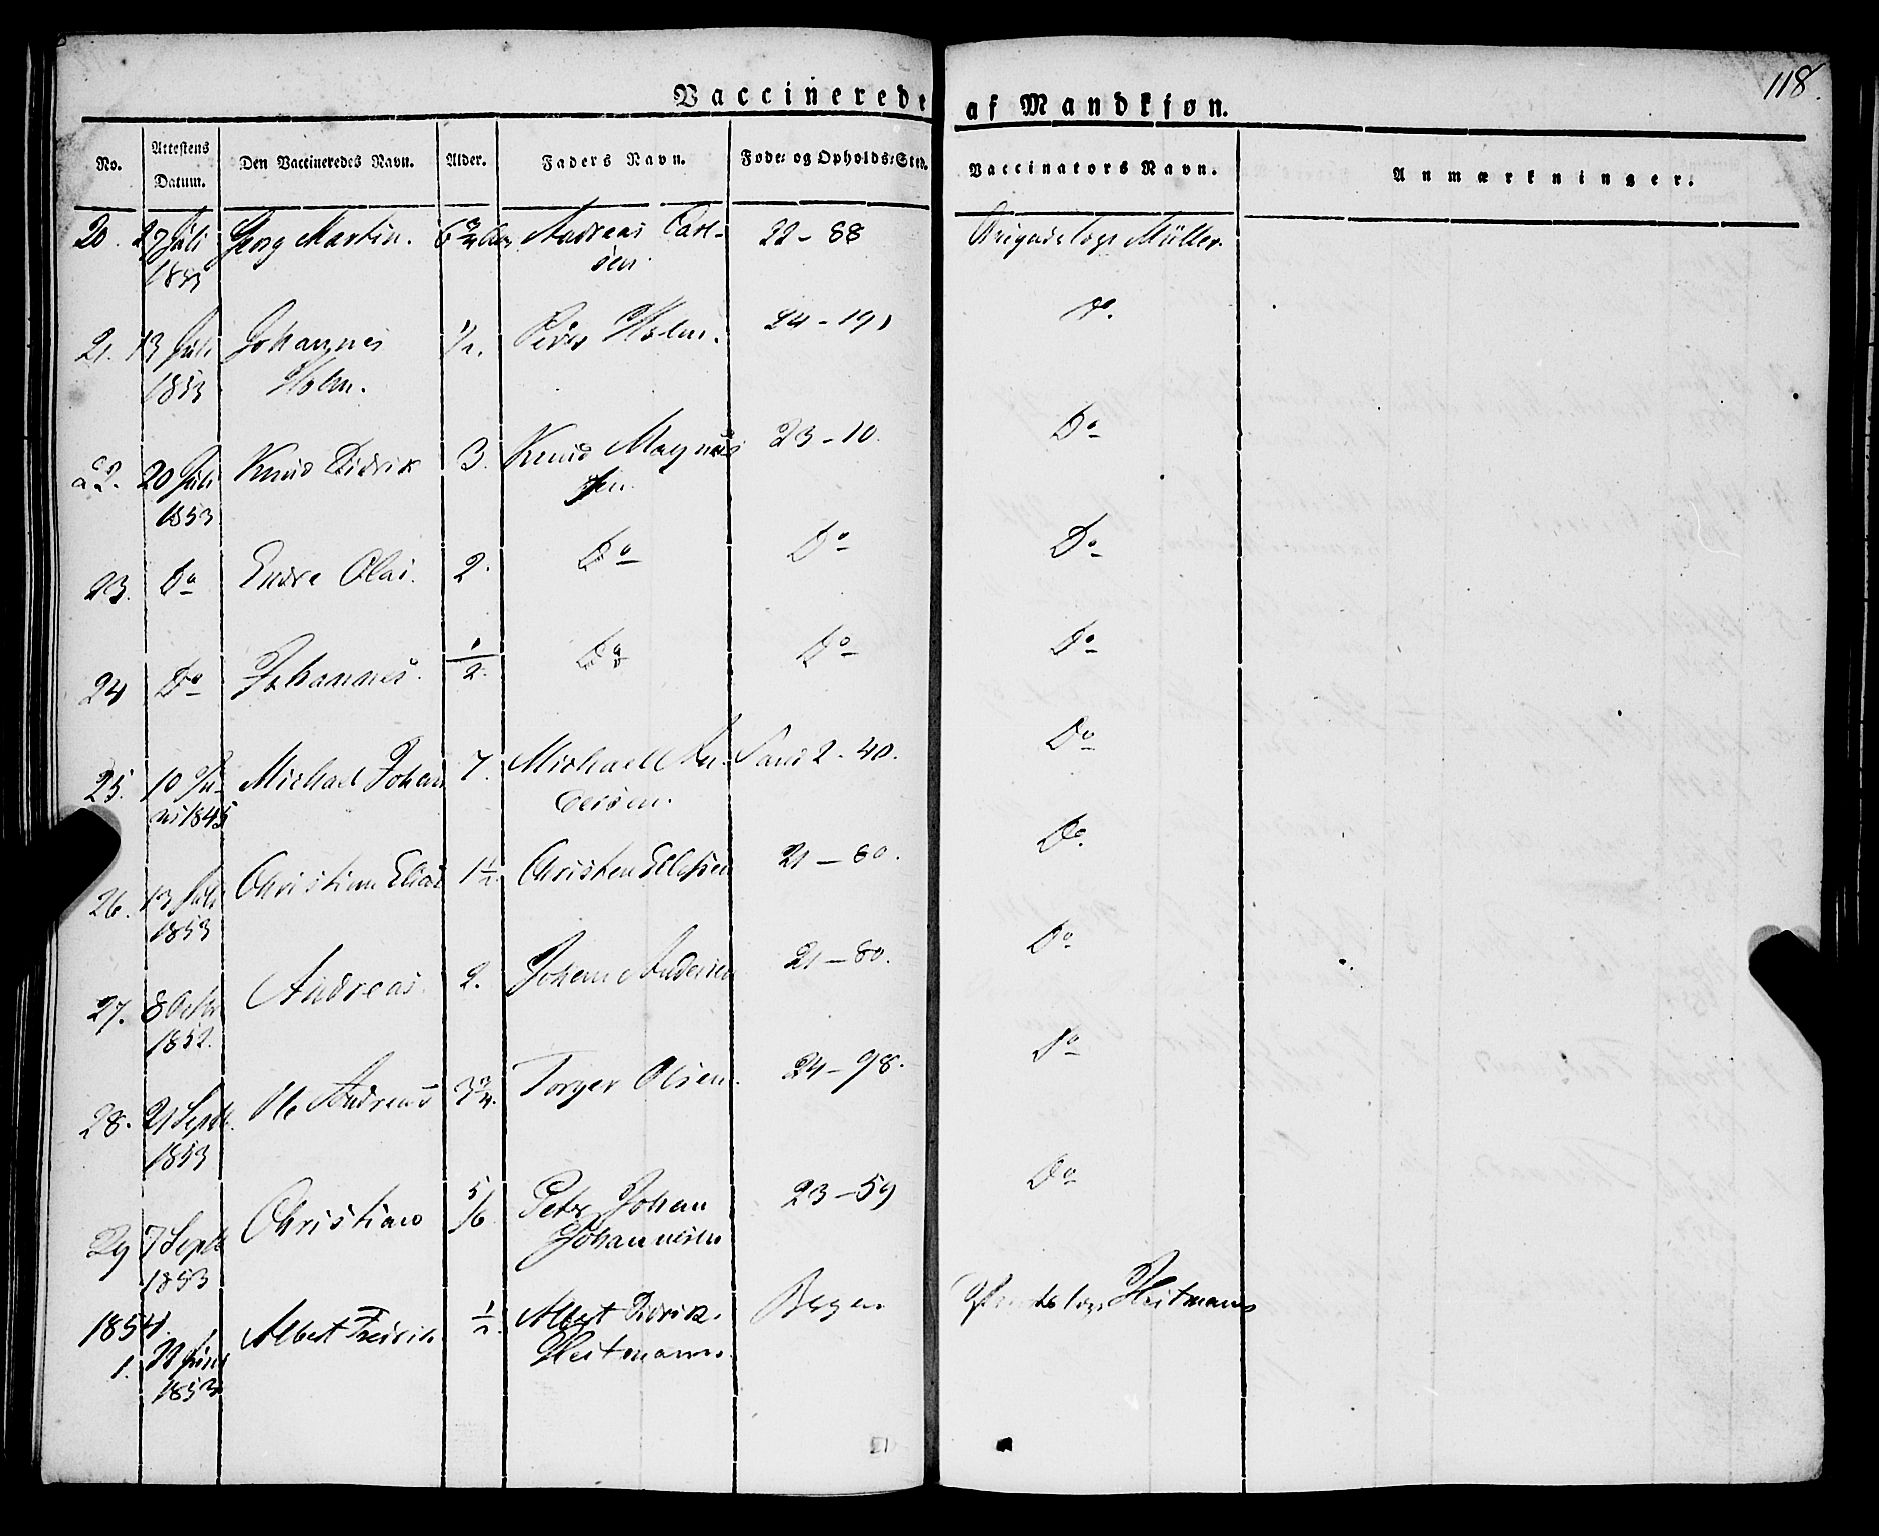 118.
Vaccinerede af Mandkjøn.
No. Attestens Datum. Den Vaccineredes Navn. Alder. Faders Navn. Føde- og Opholds-Sted. Vaccinators Navn. Anmærkninger.
20. 27 Juli Georg Martin. 6 3/4 Andreas Carl- 22 - 88 Brigadelæge Müller.
sen.
21. 13 Juli Johannes 1/2. Peder Holm. 24 - 191 Do.
1853 Holm.
22. 20 Juli Knud Didrik 3. Knud Magnus 23 - 10. Do
1853 sen.
23. Do Endre Olai. 2. Do Do Do
24 Do Johannes. 1/2. Do Do Do
25. 10 Ju- Michael Johan 7. Michael An- Sand 2 - 40. Do
ni 1845 dersen.
26. 13 Juli Christian Elias 1 1/2. Christen Ellefsen 21 - 80. Do.
1853
27. 8 Octbr Andreas. 2. Johan Andersen 21 - 80. Do
1852.
28. 21 Septb. Ole Andreas 3 3/4. Torger Olsen. 24 - 98. Do
1853
29 7 Septb Christian 5/6. Peter Johan 23 - 59 Do
1853 Johannesen
1854.
1. Juni Albert Fredrik 1/2. Albert Didrik Bergen Heitmann
1853 Heitmann.